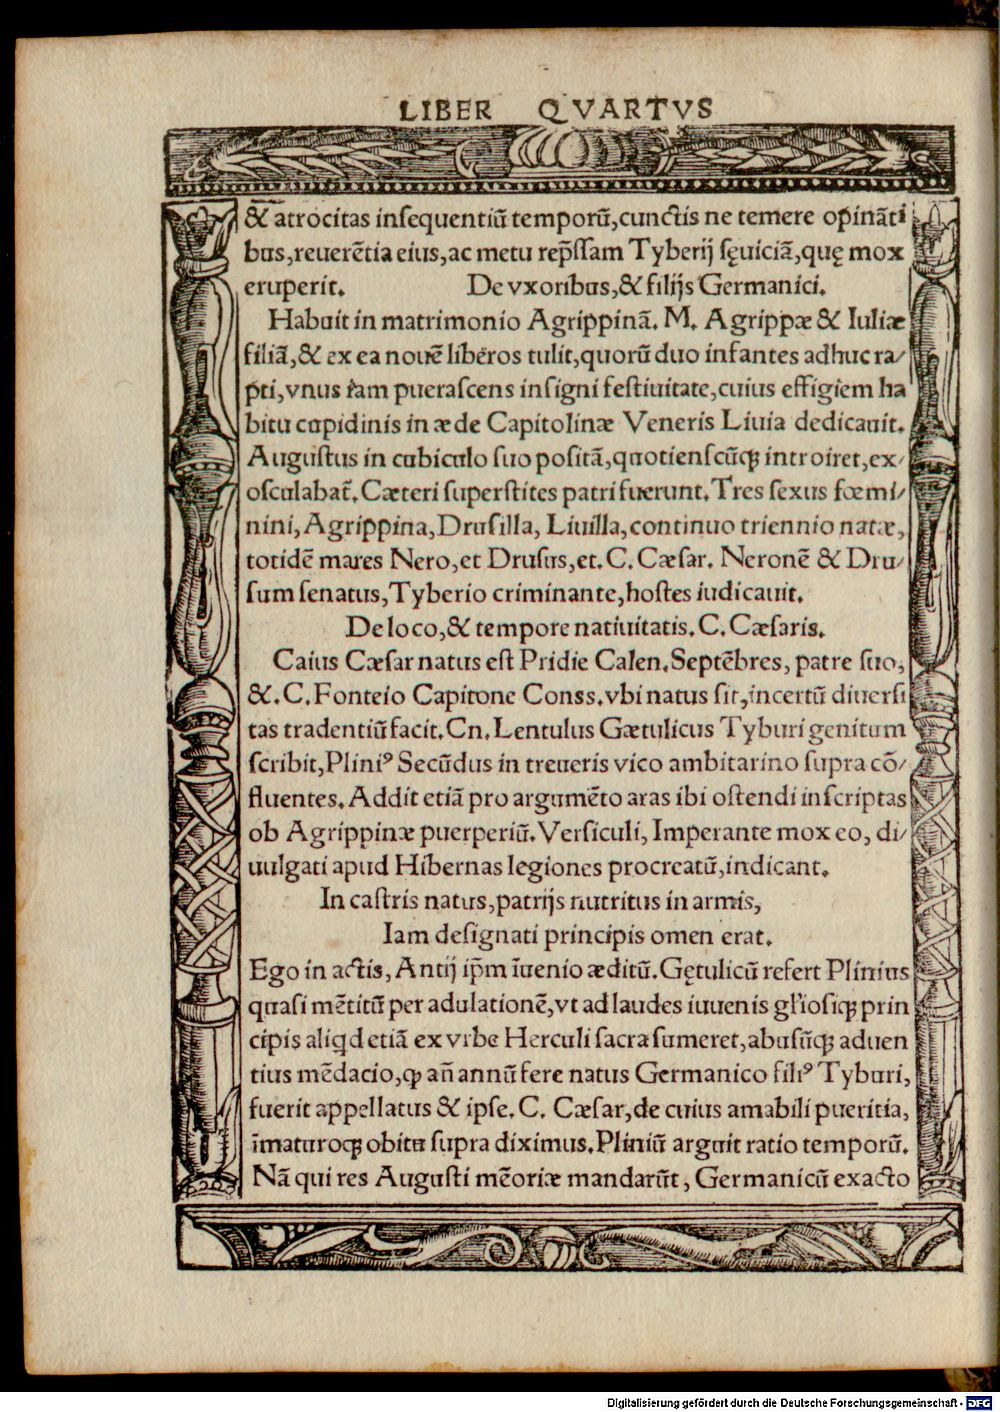 LIBER QVARTVS
& atrocitas insequentiũ temporũ,cunctis ne temere opinãti
bus,reuerẽtia eius,ac metu rep̃ssam Tyberij sęuiciã,quę mox
eruperit. De vxoribus,& filijs Germanici.
Habuit in matrimonio Agrippinã. M. Agrippæ & Iuliæ
filiã,& ex ea nouẽ liberos tulit,quorũ duo infantes adhuc ra/
pti,vnus iam puerascens insigni festiuitate,cuius effigiem ha
bitu cupidinis in æde Capitolinæ Veneris Liuia dedicauit.
Augustus in cubiculo suo positã,quotienscũqȝ introiret,ex/
osculabat̃. Cæteri superstites patri fuerunt. Tres sexus fœmi/
nini, Agrippina, Drusilla, Liuilla, continuo triennio natæ,
totidẽ mares Nero,et Drusus,et. C. Cæsar. Neronẽ & Dru/
sum senatus,Tyberio criminante,hostes iudicauit.
De loco,& tempore natiuitatis. C. Cæsaris.
Caius Cæsar natus est Pridie Calen. Septẽbres, patre suo,
&. C. Fonteio Capitone Conss. vbi natus sit,incertũ diuersi
tas tradentiũ facit. Cn. Lentulus Gætulicus Tyburi genitum
scribit,Pliniꝰ Secũdus in treueris vico ambitarino supra cõ/
fluentes. Addit etiã pro argumẽto aras ibi ostendi inscriptas
ob Agrippinæ puerperiũ. Versiculi, Imperante mox eo, di/
uulgati apud Hibernas legiones procreatũ,indicant.
In castris natus,patrijs nutritus in armis,
Iam designati principis omen erat.
Ego in actis, Antij ip̃m ĩuenio æditũ. Gętulicũ refert Plinius
quasi mẽtitũ per adulationẽ,vt ad laudes iuuenis gl̃iosiqȝ prin
cipis aliqd etiã ex vrbe Herculi sacra sumeret,abusũqȝ aduen
tius mẽdacio,ꝙ añ annũ fere natus Germanico filiꝰ Tyburi,
fuerit appellatus & ipse. C. Cæsar,de cuius amabili pueritia,
ĩmaturoqȝ obitu supra diximus. Pliniũ arguit ratio temporũ.
Nã qui res Augusti mẽoriæ mandarũt, Germanicũ exacto
Digitalisierung gefördert durch die Deutsche Forschungsgemeinschaft - DFG